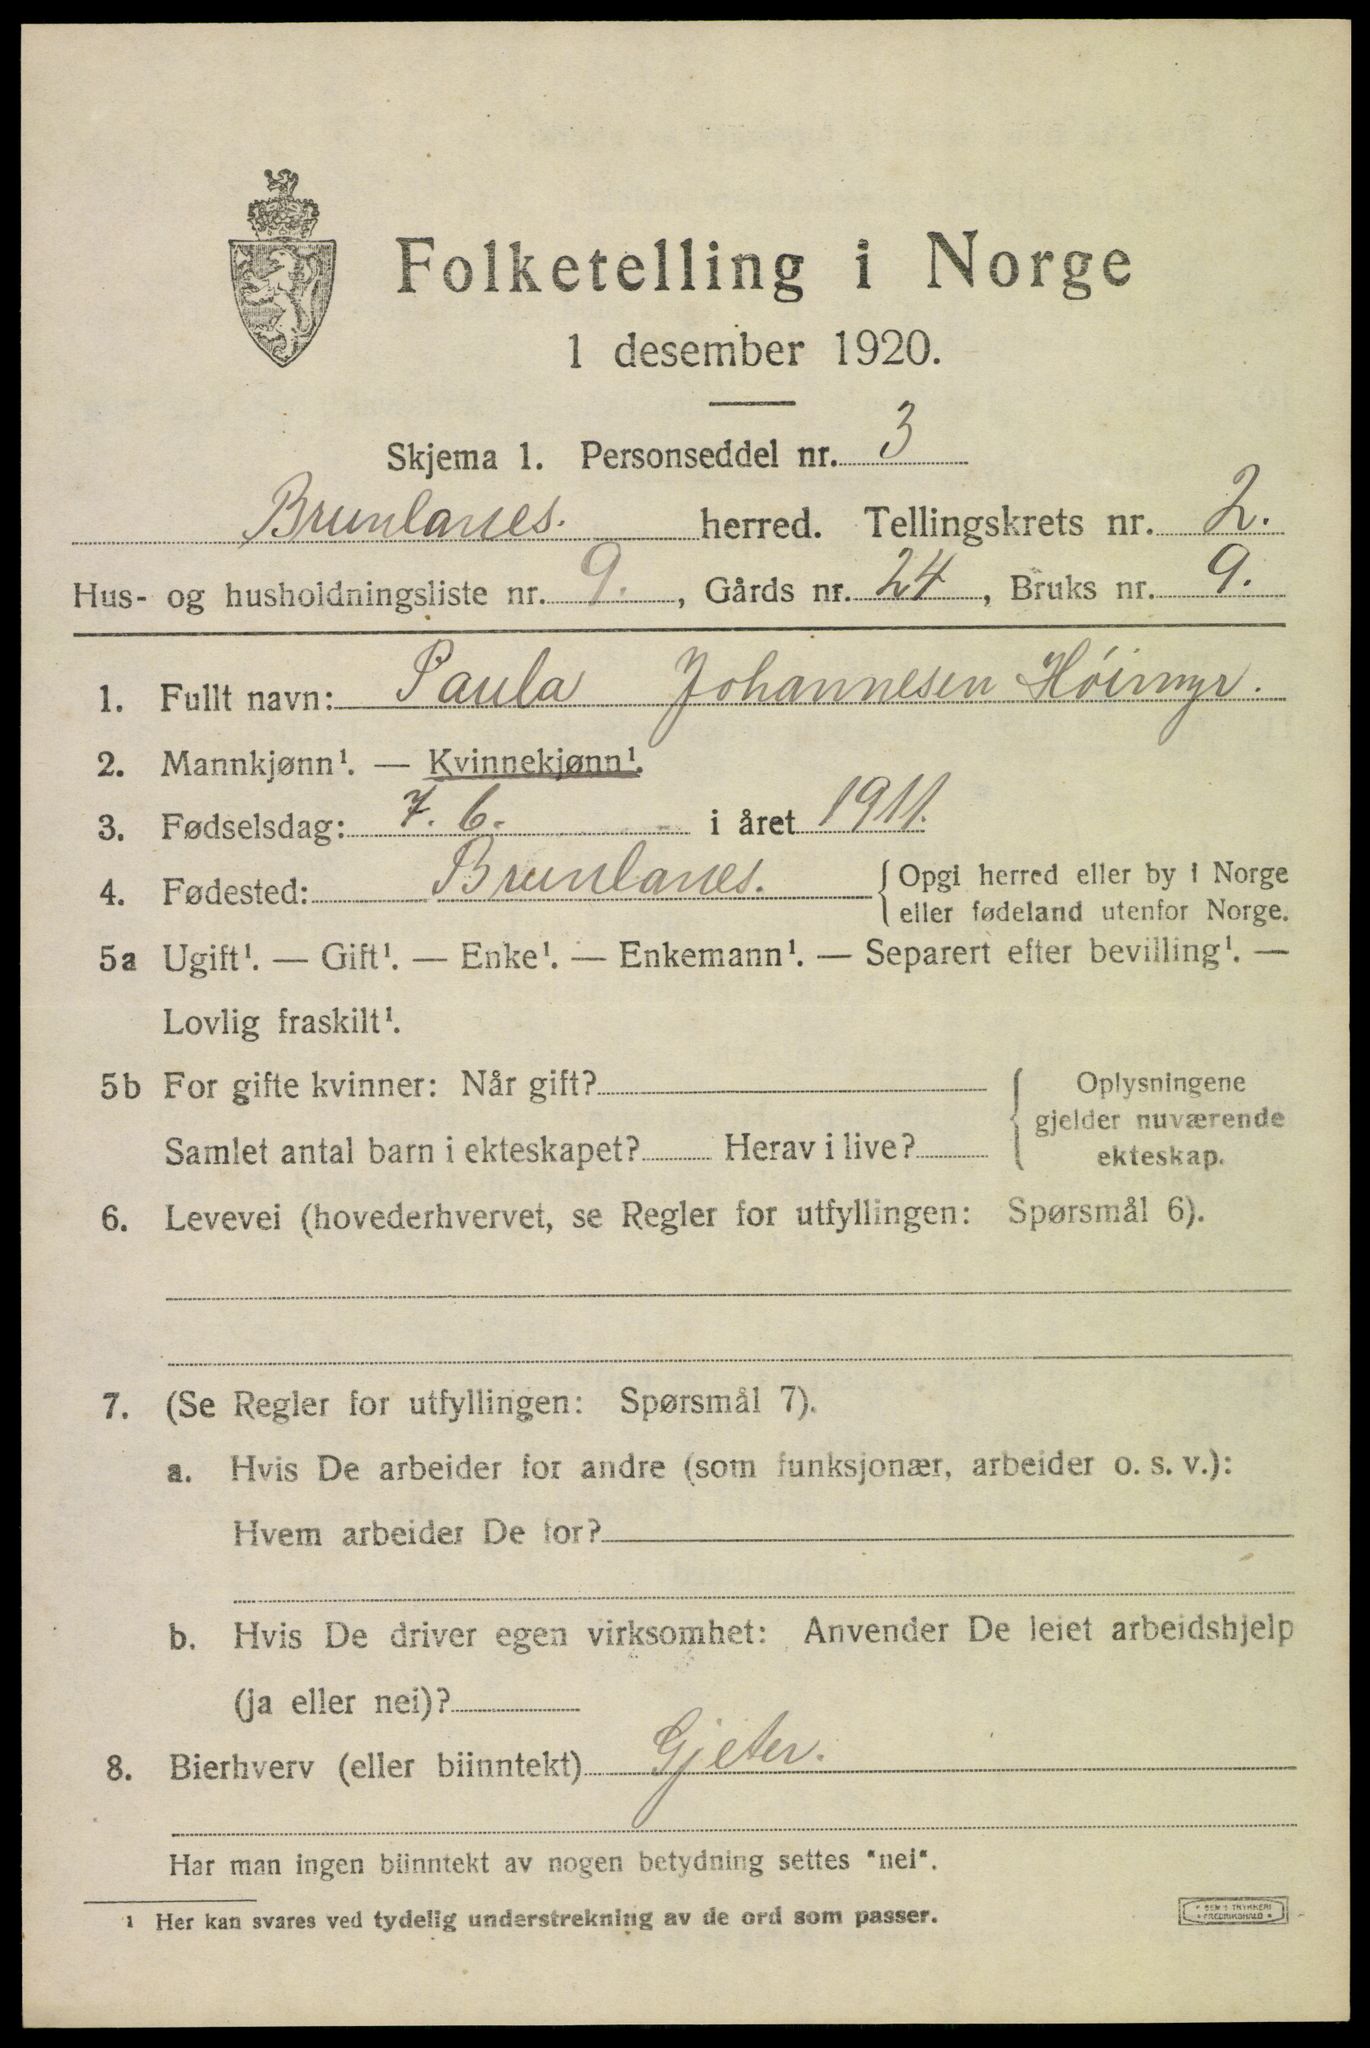 Folketelling i Norge
1 desember 1920.
Skjema 1. Personseddel nr. 3
Brunlanes. herred. Tellingskrets nr. 2.
Hus- og husholdningsliste nr. 9. , Gårds nr. 24 , Bruks nr. 9.
1. Fullt navn: Paula Johannesen Höimyr.
2. Mannkjønn¹. — Kvinnekjønn¹.
3. Fødselsdag: 7. 6. i året 1911.
4. Fødested: Brunlanes. { Opgi herred eller by i Norge
eller fødeland utenfor Norge.
5a Ugift¹. — Gift¹. — Enke¹. — Enkemann¹. — Separert efter bevilling¹. —
Lovlig fraskilt¹.
5b For gifte kvinner: Når gift? { Oplysningene
gjelder nuværende
Samlet antal barn i ekteskapet? Herav i live? ekteskap.
6. Levevei (hovederhvervet, se Regler for utfyllingen: Spørsmål 6).
7. (Se Regler for utfyllingen: Spørsmål 7).
a. Hvis De arbeider for andre (som funksjonær, arbeider o. s. v.):
Hvem arbeider De for?
b. Hvis De driver egen virksomhet: Anvender De leiet arbeidshjelp
(ja eller nei)?
8. Bierhverv (eller biinntekt) Gjeter.
Har man ingen biinntekt av nogen betydning settes "nei".
1 Her kan svares ved tydelig understrekning av de ord som passer.